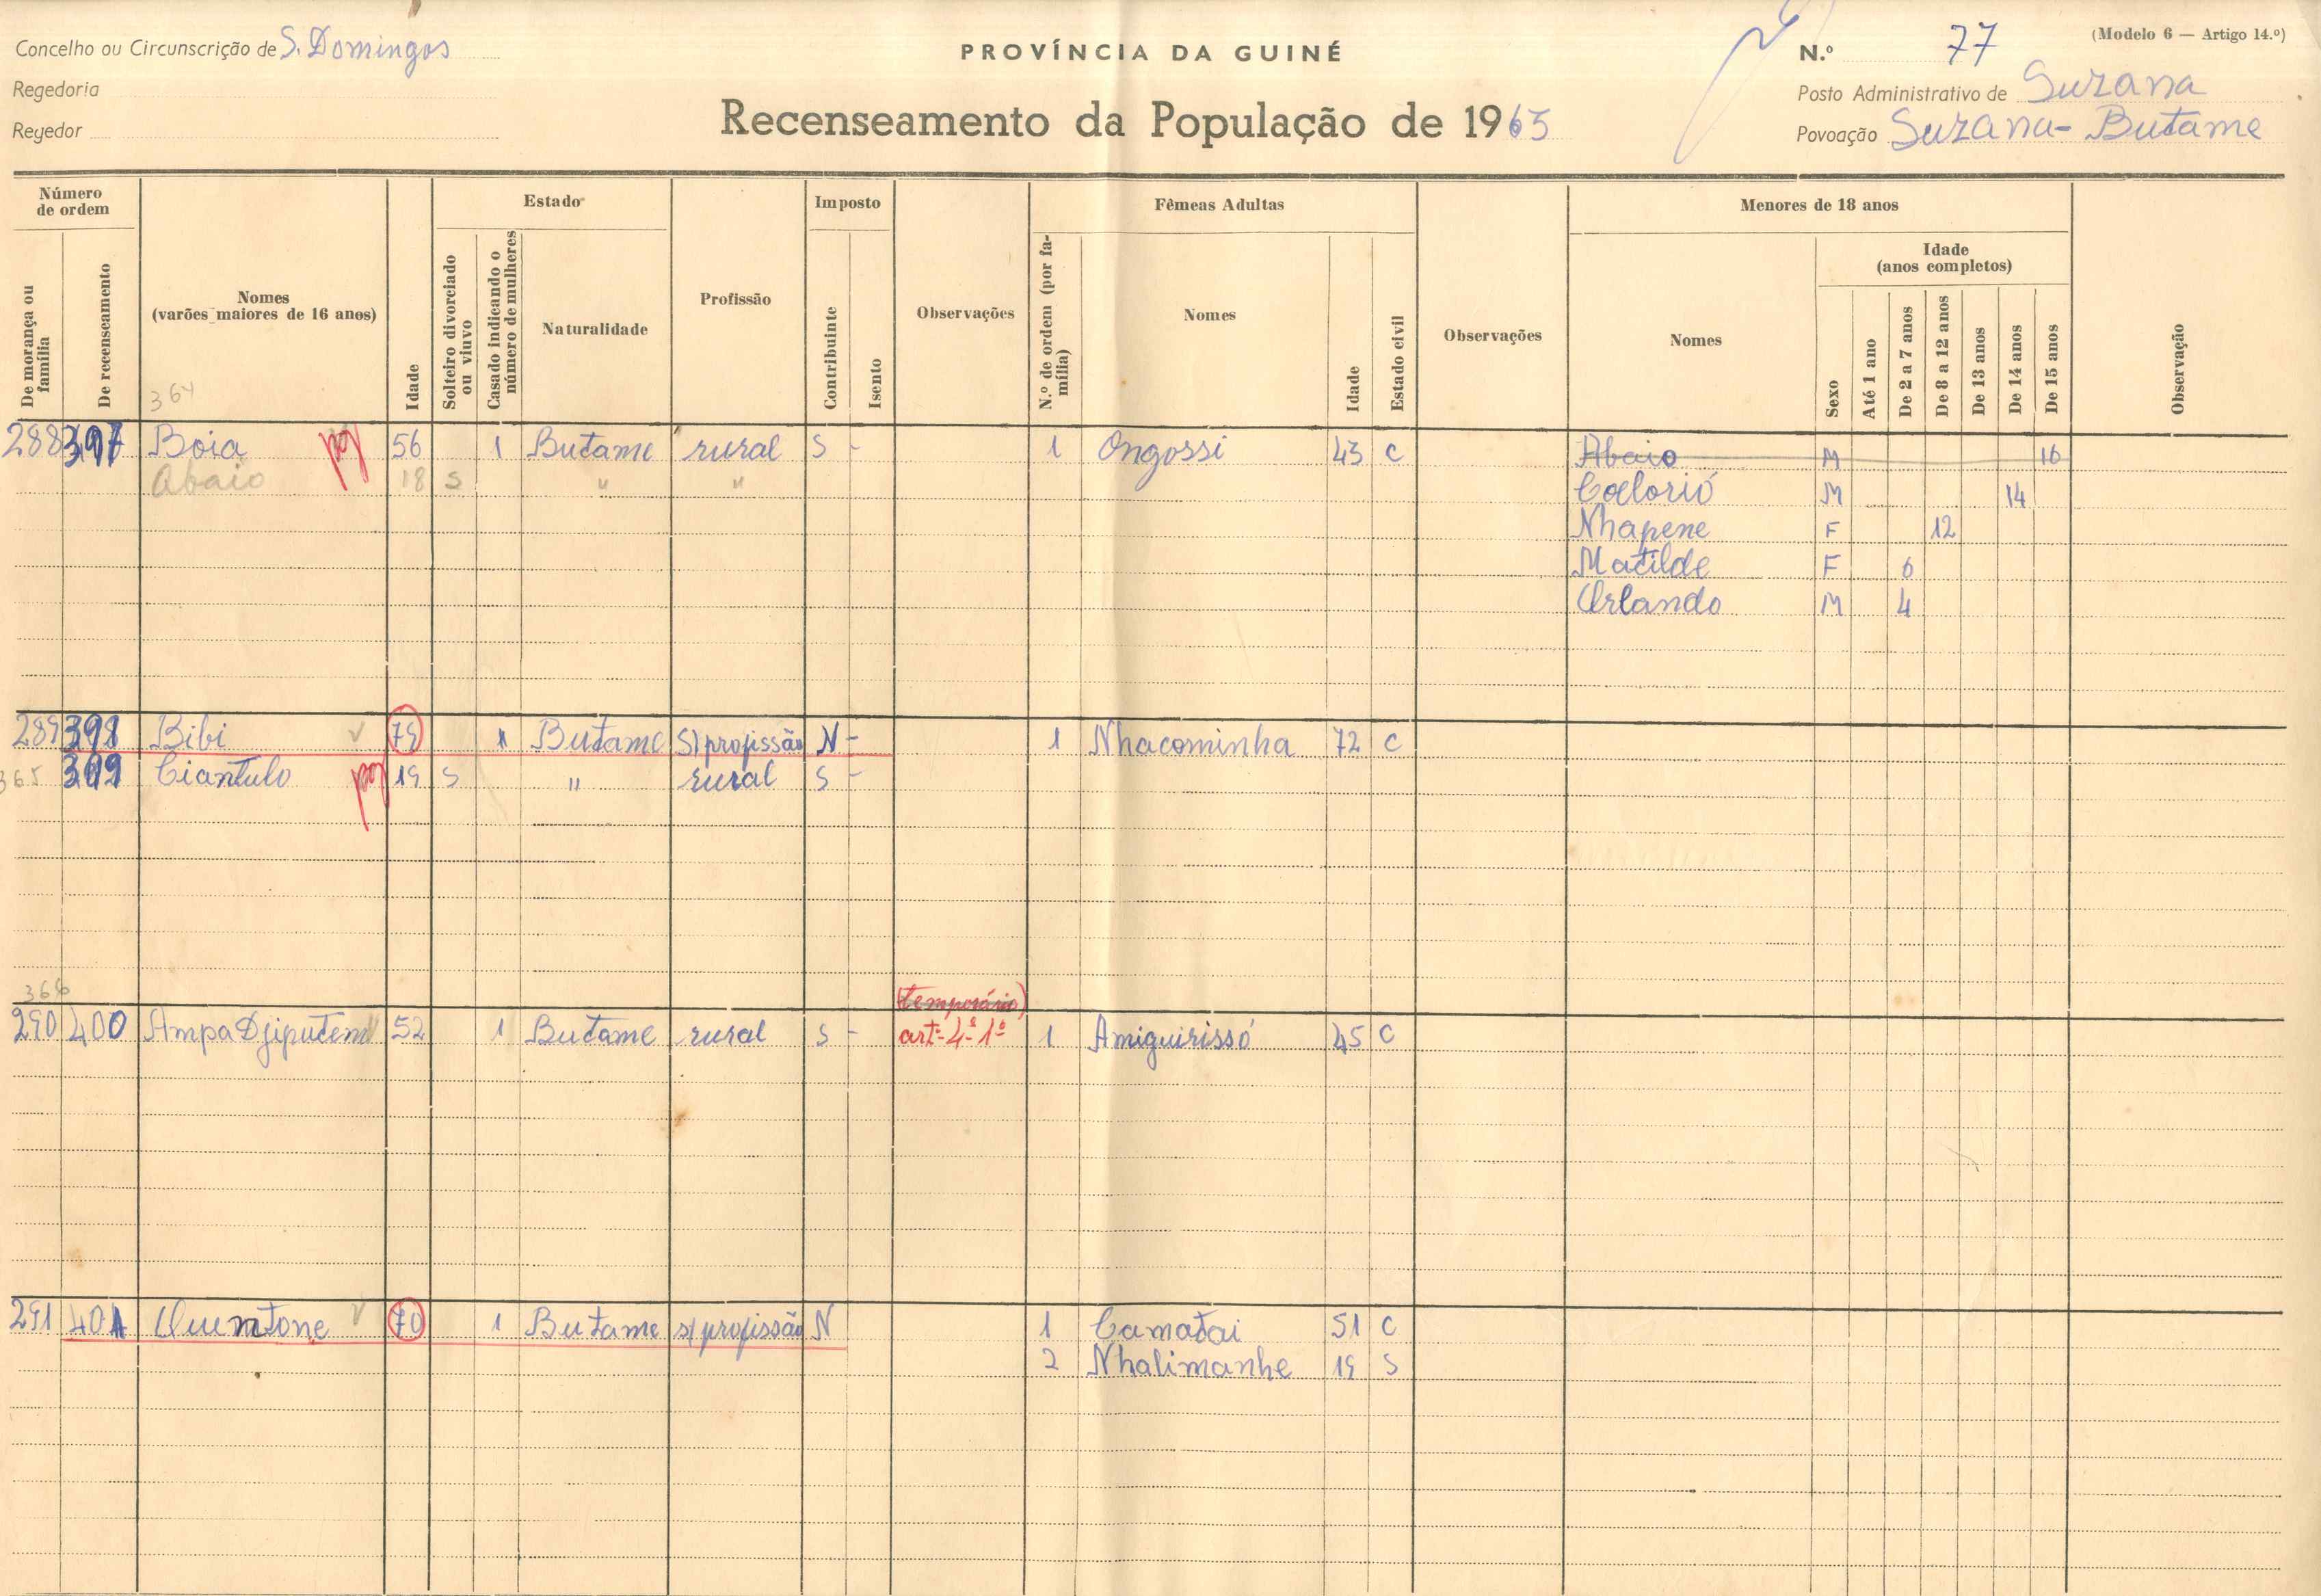 Concelho ou Circunscrição de S. Domingos
Regedoria
Regedor
PROVÍNCIA DA GUINÉ
Recenseamento da População de 1965
(Modelo 6 — Artigo 14.º)
N.º 77
Posto Administrativo de Suzana
Povoação Suzana - Butame
Número de ordem
De morança ou família
De recenseamento
Nomes
(varões maiores de 16 anos)
Idade
Estado
Solteiro divorciado ou viuvo
Casado indicando o número de mulheres
Naturalidade
Profissão
Imposto
Contribuinte
Isento
Observações
Fêmeas Adultas
N.º de ordem (por família)
Nomes
Idade
Estado civil
Observações
Menores de 18 anos
Nomes
Sexo
Idade
(anos completos)
Até 1 ano
De 2 a 7 anos
De 8 a 12 anos
De 13 anos
De 14 anos
De 15 anos
Observação
364
288 397 Boia pg 56 1 Butame rural S - 1 Ongossi 43 C Abaio M 16
Abaio 18 S " " Coelorió M 14
Nhapene F 12
Matilde F 6
Orlando M 4
289 398 Bibi 79 1 Butame S/ profissão N - 1 Nhacominha 72 C
365 399 Ciantulo pg 19 S " rural S -
366
(temporário)
290 400 Ampa Djiputem 52 1 Butame rural S - artº 4º 1º 1 Amiguirissó 45 C
291 401 Quintone 70 1 Butame s/ profissão N 1 Camatai 51 C
2 Nhalimanhe 19 S